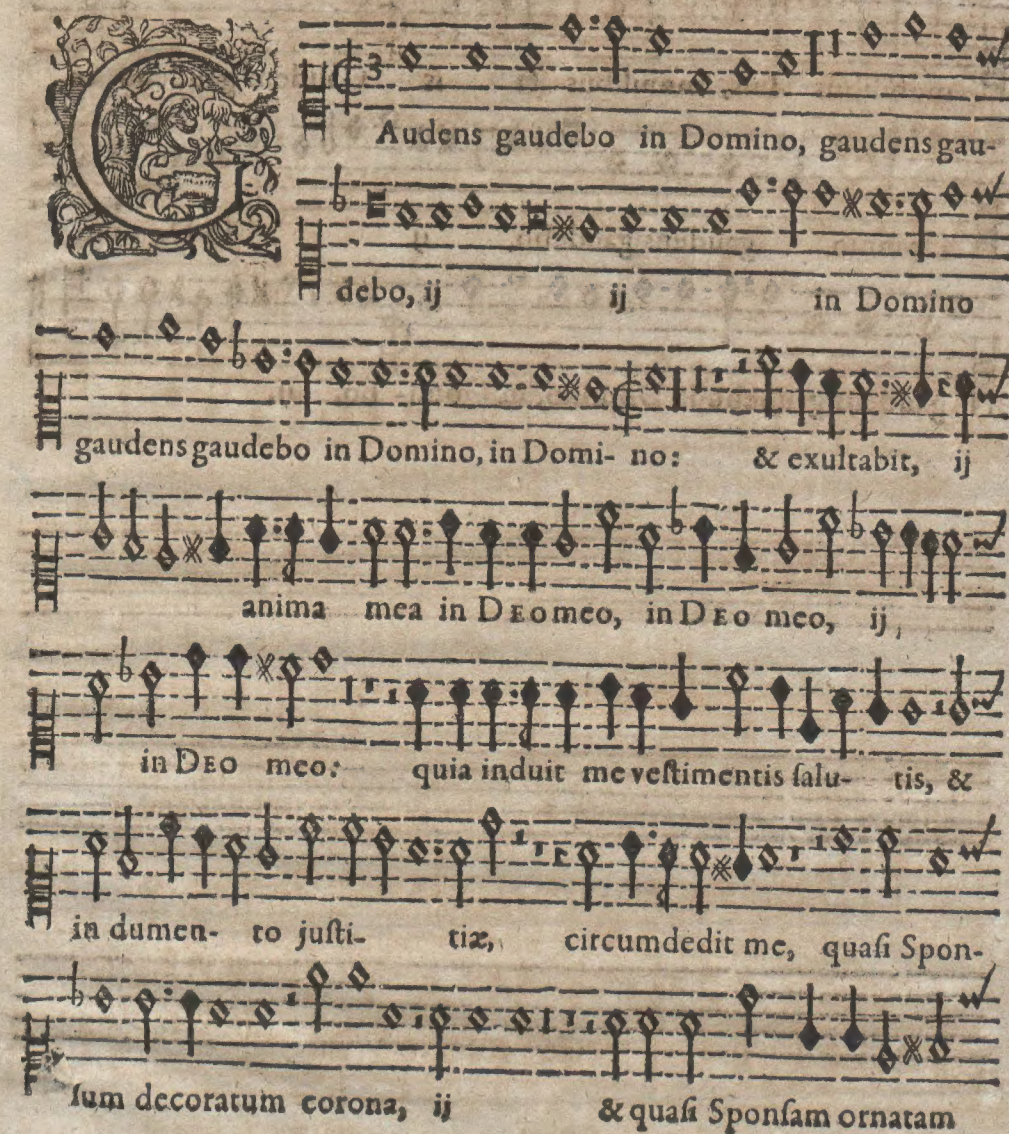 GAudens gaudebo in Domino, gaudens gau-
debo, ij ij in Domino
gaudens gaudebo in Domino, in Domi- no: & exultabit, ij
anima mea in DEO meo, in DEO meo, ij
in DEO meo: quia induit me veſtimentis ſalu- tis, &
in dumen- to juſti- tiæ, circumdedit me, quaſi Spon-
ſum decoratum corona, ij & quaſi Sponſam ornatam